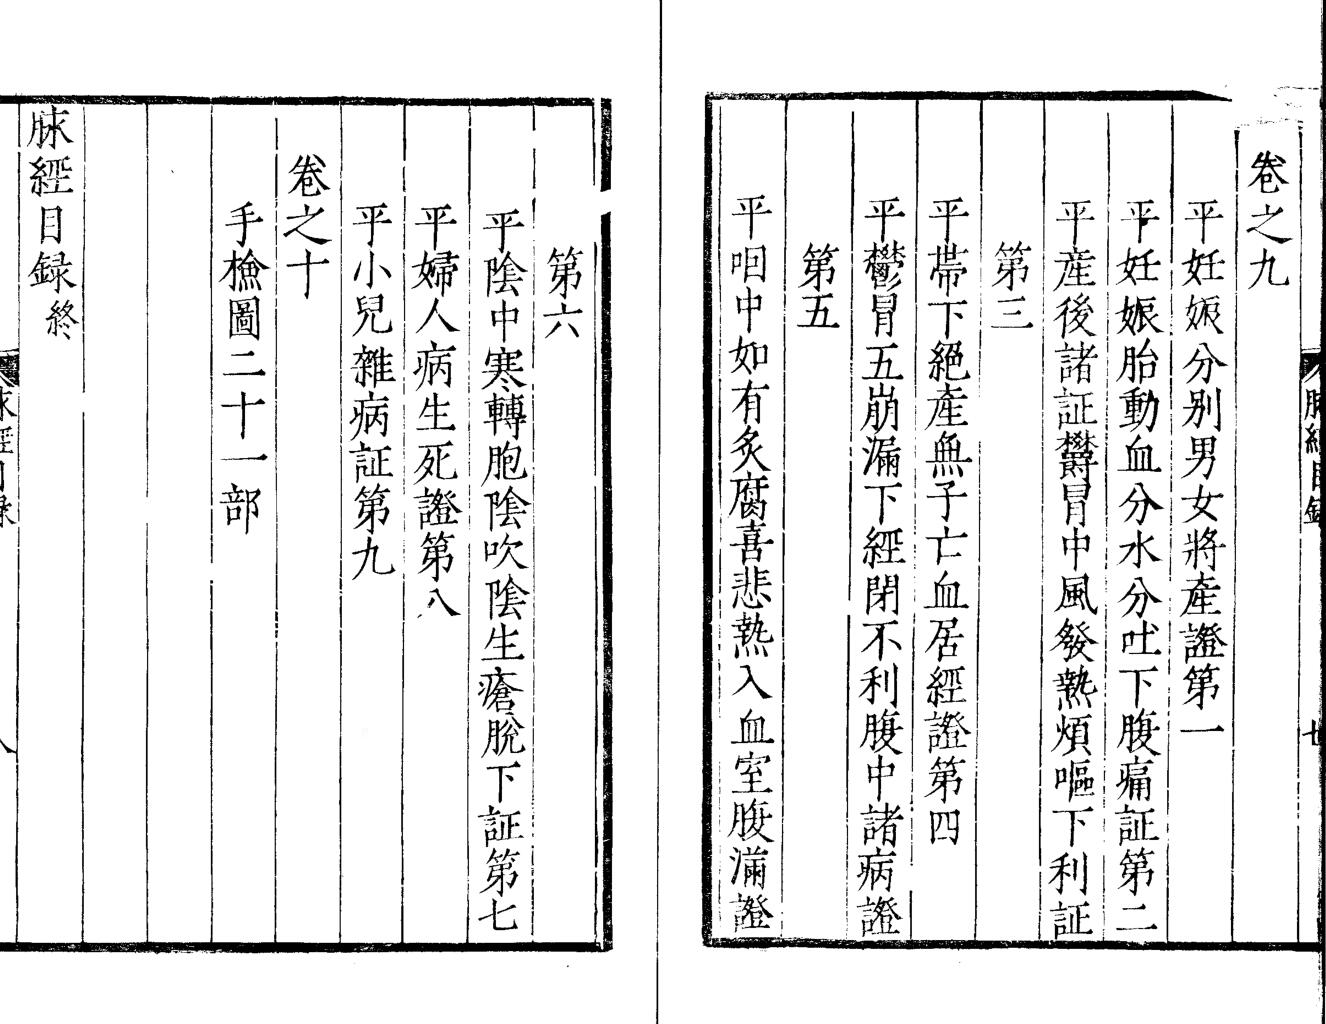 卷之九
平妊娠分别男女將產證第一
平妊娠胎動血分水分吐下腹痛証第二
平產後諸証欝冒中風發熱煩嘔下利証
第三
平帶下絕產無子亡血居經證第四
平鬱冒五崩漏下經閉不利腹中諸病證
第五
平咽中如有炙腐喜悲熱入血室腹滿證
第六
平陰中寒轉胞陰吹陰生瘡脫下証第七
平婦人病生死證第八
平小兒雜病証第九
卷之十
手檢圖二十一部
脉經目録終